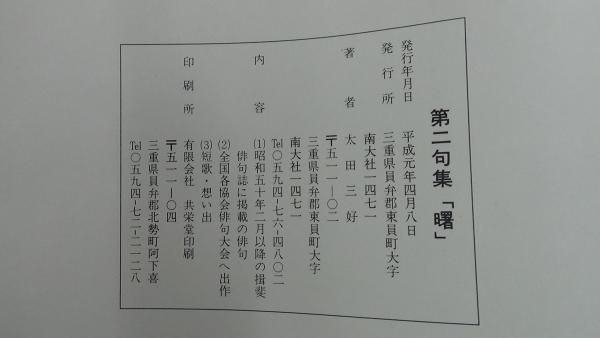 第二句集「曙」
発行年月日 平成元年四月八日
発行所 三重県員弁郡東員町大字
南大社一四七一
著者 太田三好
〒五一一―〇二
三重県員弁郡東員町大字
南大社一四七一
℡〇五九四―七六―四八〇二
内容 ⑴昭和五十年二月以降の揖斐
俳句誌に掲載の俳句
⑵全国各協会俳句大会へ出作
⑶短歌・想い出
印刷所 有限会社 共栄堂印刷
〒五一一―〇四
三重県員弁郡北勢町阿下喜
℡〇五九四―七二―二一二八